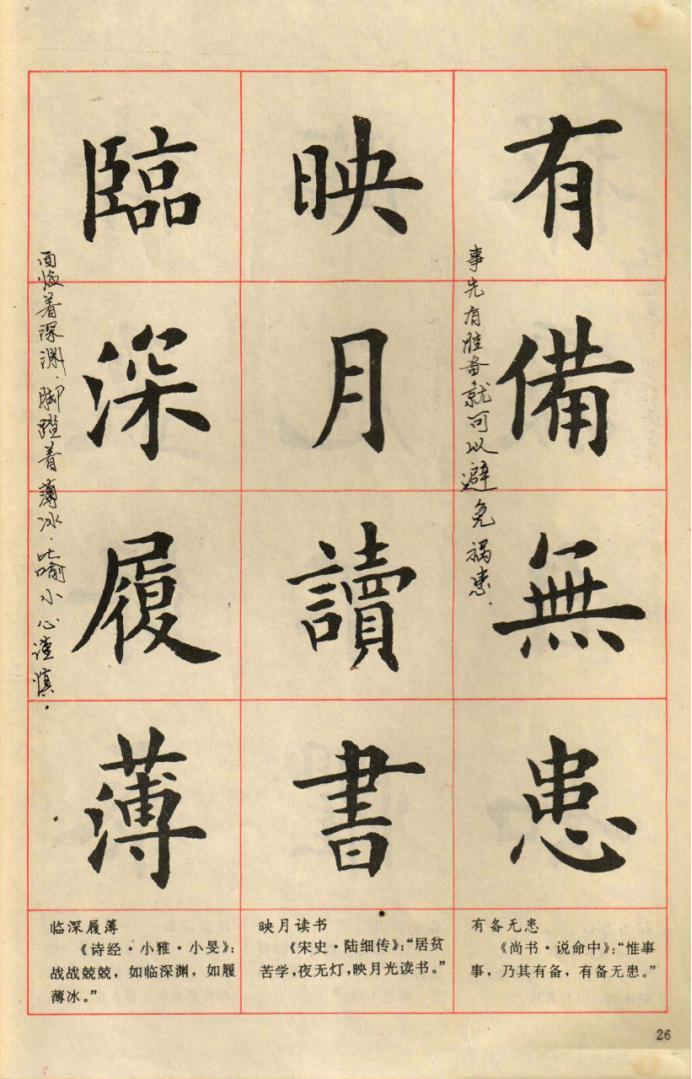 有備無患
事先有准备就可以避免祸患.
映月讀書
臨深履薄
面临着深渊.脚踏着薄冰.比喻小心谨慎.
有备无患
《尚书·说命中》：“惟事
事，乃其有备，有备无患。”
映月读书
《宋史·陆细传》：“居贫
苦学，夜无灯，映月光读书。”
临深履薄
《诗经·小雅·小旻》：
战战兢兢，如临深渊，如履
薄冰。”
26